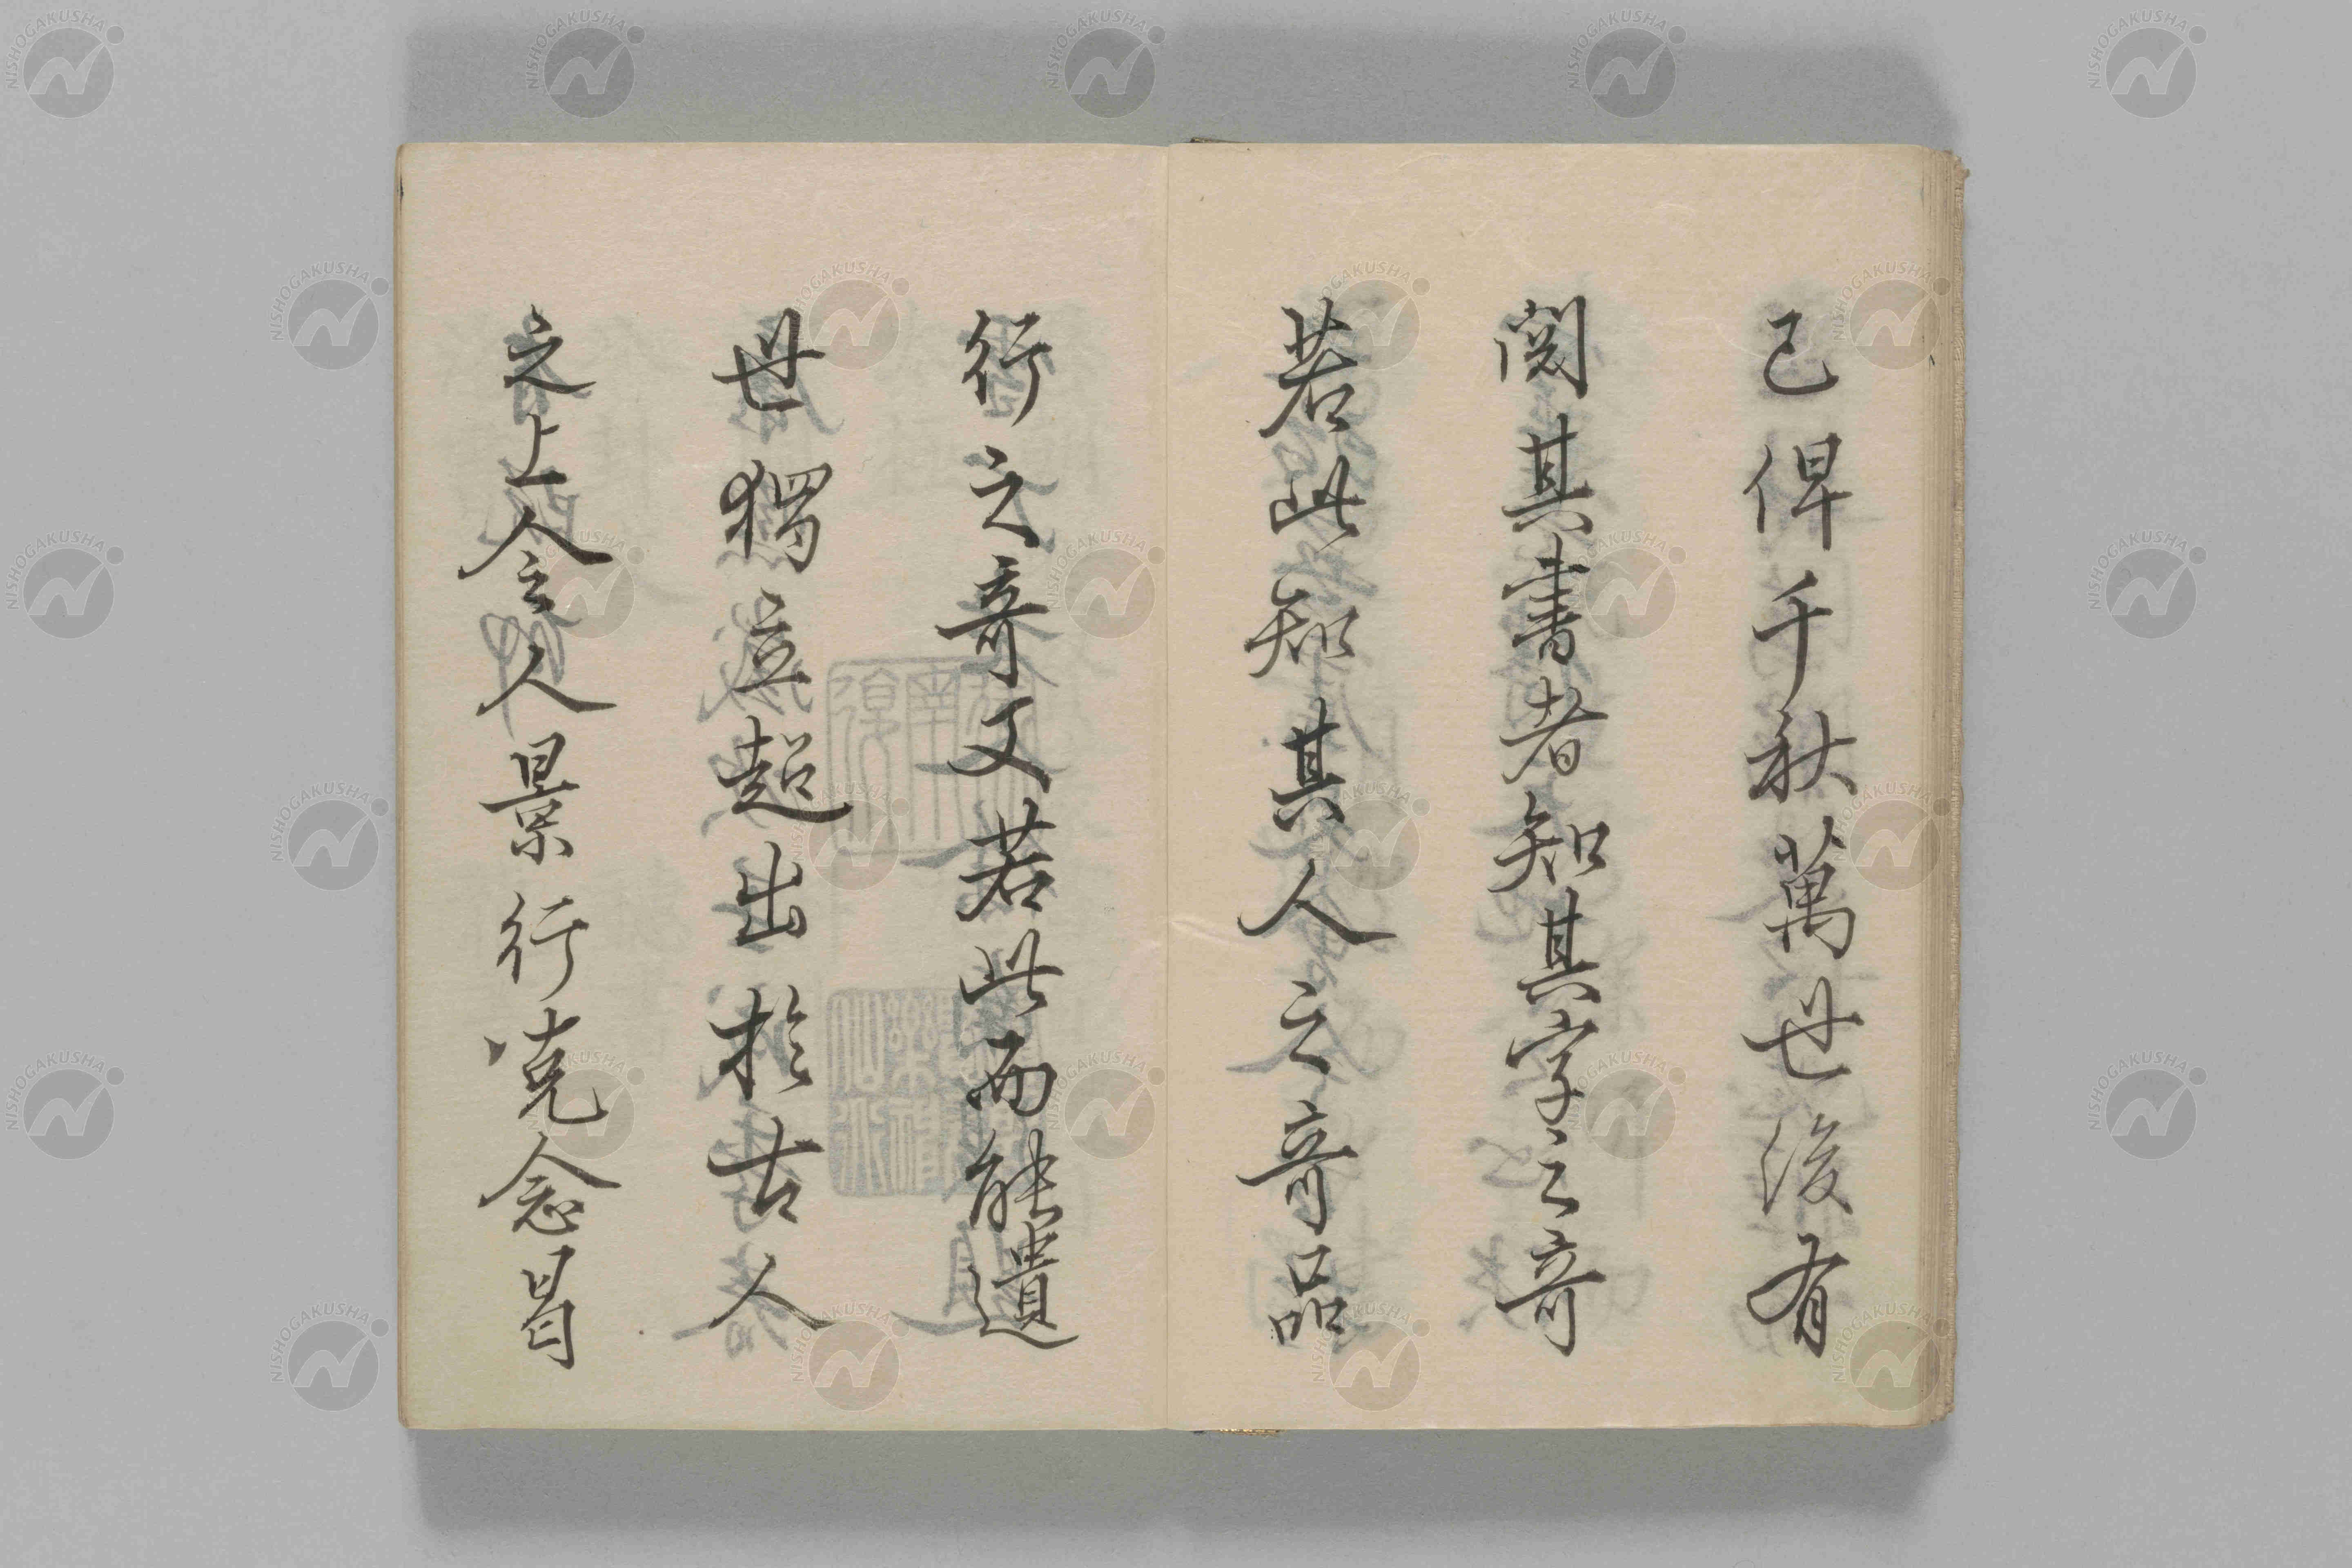 已俾千秋萬世後有
閱其書者知其字之奇
若此知其人之奇品
行之奇文若此而能遺
世獨立超出於古人
之上人之人景行克念曷